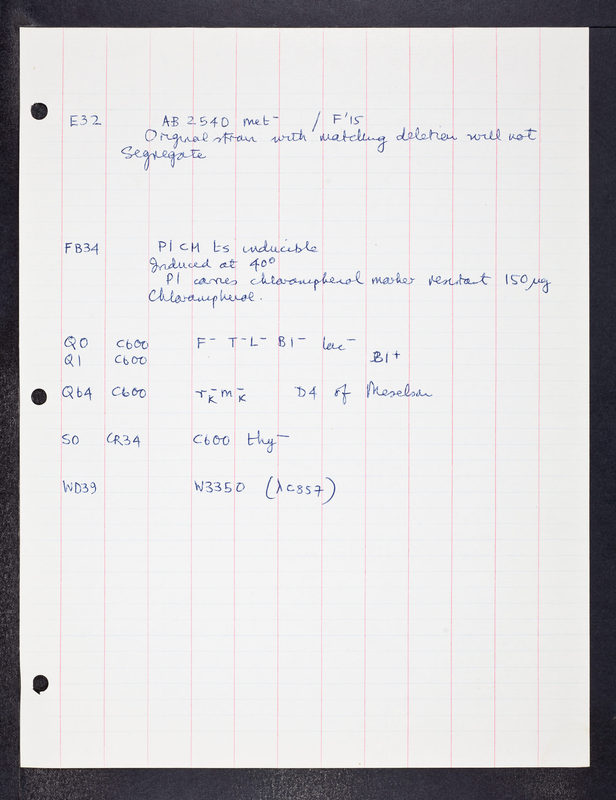 E32 AB 2540 met⁻ / F'15
Original strain with matching deletion will not
segregate
FB34 P1 CM ts inducible
Induced at 40°
P1 carries chloramphenol marker resistant 150 µg
Chloramphenol.
Q0 C600 F⁻ T⁻L⁻ B1⁻ lac⁻
Q1 C600 B1⁺
Q64 C600 r⁻K m⁻K D4 of Meselson
S0 CR34 C600 thy⁻
WD39 W3350 (λc857)